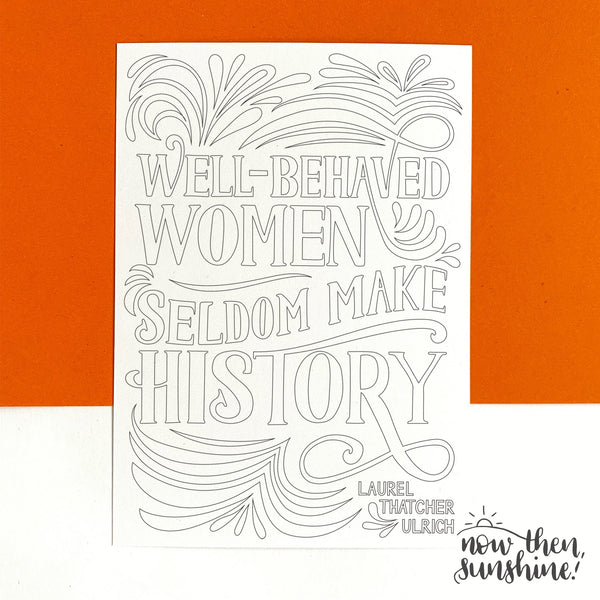 WELL-BEHAVED
WOMEN
SELDOM MAKE
HISTORY
LAUREL
THATCHER
ULRICH
now then,
sunshine!